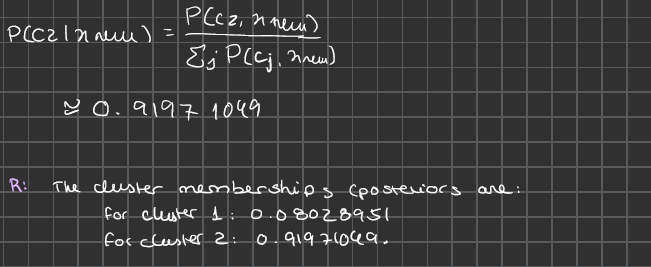 P(c2|xnew) = P(c2, xnew) / Σj P(cj, xnew)
≃ 0.91971049
R: The cluster memberships (posteriors are:
for cluster 1: 0.08028951
for cluster 2: 0.91971049.